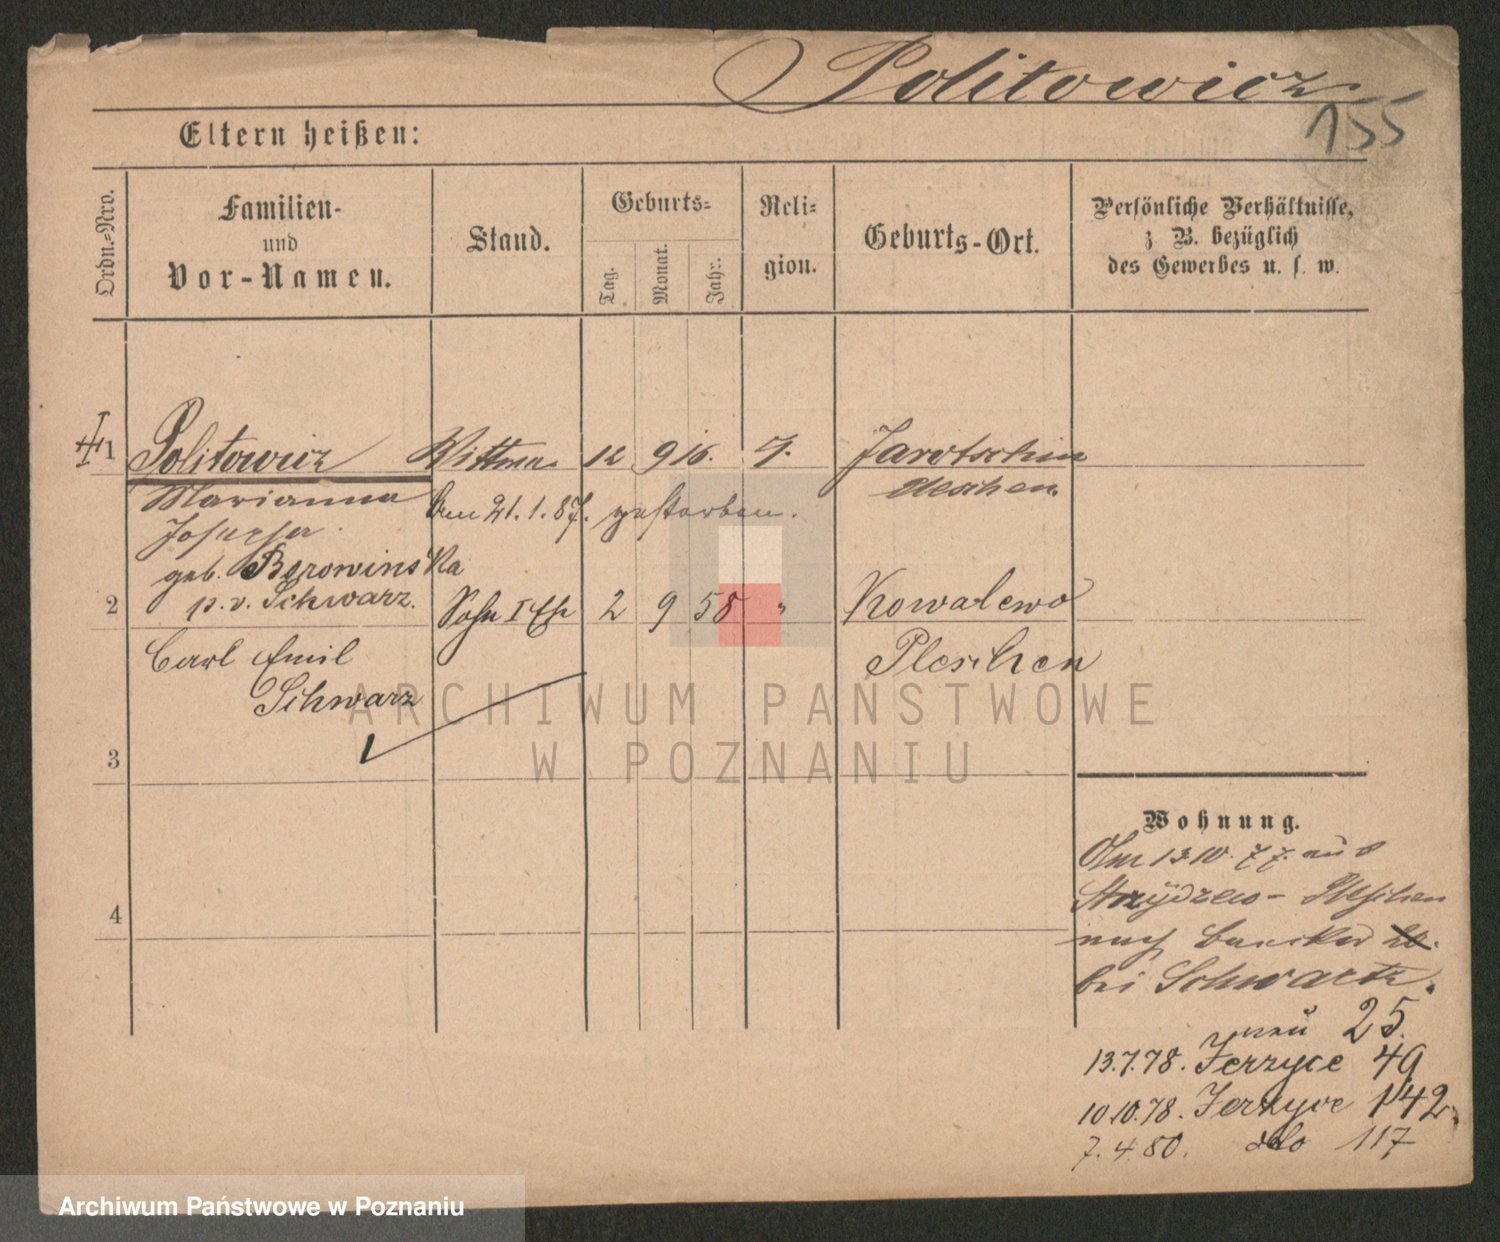 Politowicz
155
Eltern heißen:
Ordn.-Nro.
Familien-
und
Vor-Namen.
Stand.
Geburts-
Tag.
Monat.
Jahr.
Reli-
gion.
Geburts-Ort.
Persönliche Verhältnisse,
z B. bezüglich
des Gewerbes u. s. w.
1 Politowicz Wittwe 12 9 16. Jarotschin
Marianna
Am 21.1.87. gestorben.
Josepha
geb. Borowinska
p.v. Schwarz.
2 Sohn I Ehe 2 9 58 " Kowalewo
Carl Emil Pleschen
Schwarz
3
4
Wohnung.
Am 13 10. 77. aus
Pleschen
nach
bei Schwartz.
neu 25.
13.7.78. Jerzyce 49
10.10.78. Jerzyce 142.
7.4.80. dto 117
ARCHIWUM PAŃSTWOWE
W POZNANIU
Archiwum Państwowe w Poznaniu